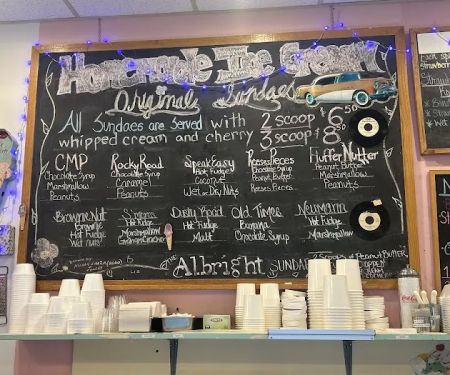 Homemade Ice Cream
Originals Sundaes
All Sundaes are Served with
whipped cream and cherry
2 scoop $6.50
3 scoops $8
CMP
Chocolate Syrup
Marshmallow
Peanuts
Rocky Road
Chocolate Syrup
Caramel
Peanuts
SpeakEasy
Hot Fudge
Coconut
Wet or Dry Nuts
Reeses Pieces
Chocolate Syrup
Marshmallow
Reeses Pieces
Fluffer Nutter
Peanut Butter
Marshmallow
Peanuts
Brownie Nut
Brownie
Hot Fudge
Wet nuts
Hot Fudge
Marshmallow
Dusty Road
Hot Fudge
Malt
Old Times
Banana
Chocolate Syrup
Neumann
Hot Fudge
Marshmallow
The Albright SUNDAE
2 SCOOPS
PEANUT BUTTER